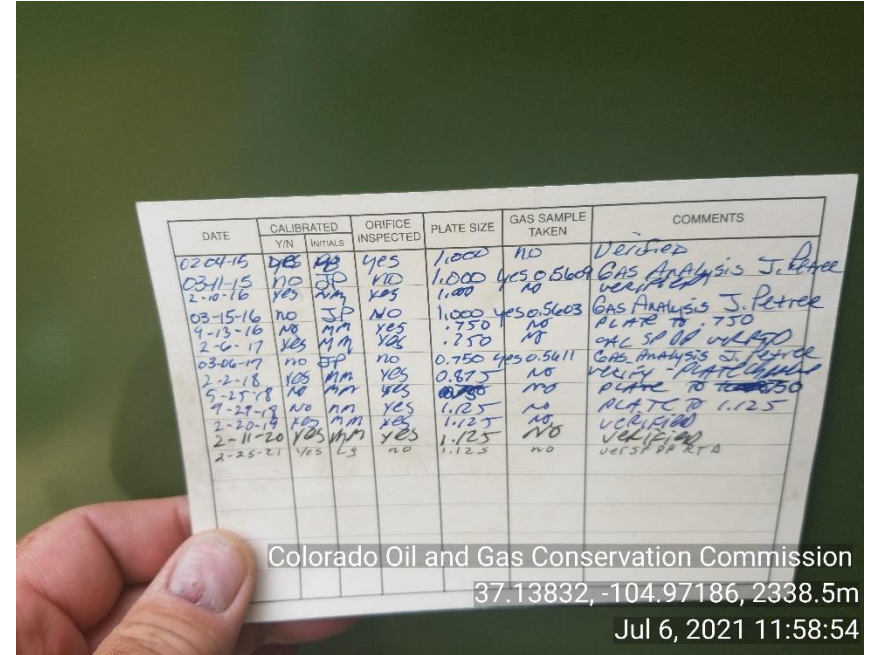 DATE CALIBRATED ORIFICE INSPECTED PLATE SIZE GAS SAMPLE TAKEN COMMENTS
Y/N INITIALS
02-04-15 yes yes 1.000 no Verified
03-11-15 no JP no 1.000 yes 0.5609 GAS Analysis J. Petree
2-10-16 yes mm yes 1.000 no verified
03-15-16 no JP NO 1.000 yes 0.5603 GAS Analysis J. Petree
9-13-16 No mm Yes .750 No PLATE TO .750
2-6-17 Yes mm Yes .750 No CAL SP DP
03-06-17 no JP no 0.750 yes 0.5611 GAS Analysis J. Petree
2-2-18 Yes mm Yes 0.875 no verify - PLATE
5-25-18 No mm yes no PLATE TO
9-29-18 No mm Yes 1.125 no PLATE TO 1.125
2-20-19 Yes mm Yes 1.125 no VERIFIED
2-11-20 YOS mm YES 1.125 NO VERIFIED
2-25-21 Yes LS no 1.125 no ver SP DP RTD
Colorado Oil and Gas Conservation Commission
37.13832, -104.97186, 2338.5m
Jul 6, 2021 11:58:54